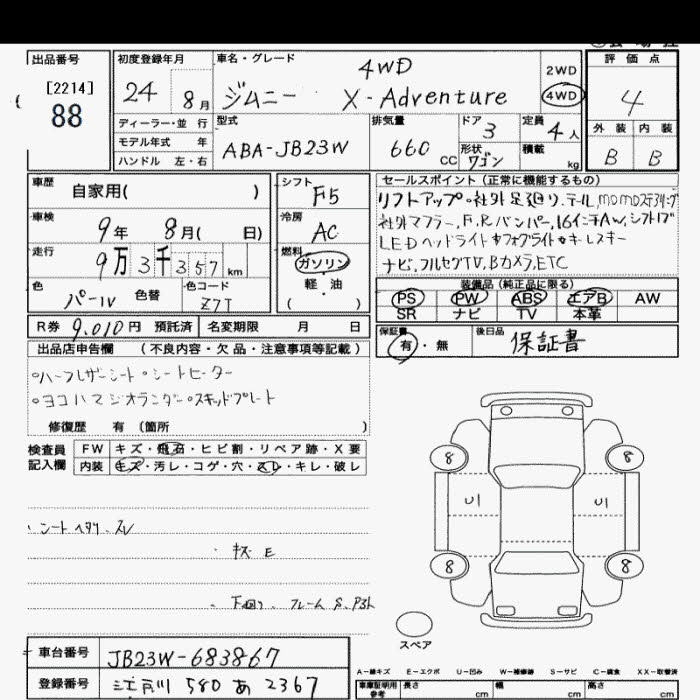 出品番号
[2214]
88
初度登録年月
24 8月
ディーラー・並 行
モデル年式 年
ハンドル 左・右
車名・グレード
4WD
ジムニー X-Adventure
2WD
4WD
評 価 点
4
外 装 内 装
B B
型式
ABA-JB23W
排気量
660 CC
ドア 3
形状 ワゴン
定員 4人
積載 kg
車歴 自家用( )
車検 9年 8月( 日)
走行 9万3千357km
色 パールⅣ 色替 色コード Z7T
シフト F5
冷房 AC
燃料
ガソリン
軽・油
( )
R券 9,010円 預託済 名変期限 月 日
セールスポイント (正常に機能するもの)
リフトアップ・社外足廻り.テール,MOMOステアリング
社外マフラー,F,Rバンパー,16インチAW,シフトノブ
LEDヘッドライト・フォグライト・キーレスキー
ナビ,フルセグTV,Bカメラ,ETC
装備品 (純正品に限る)
PS PW ABS エアB AW
SR ナビ TV 本革
保証書 有・無 後日品 保証書
出品店申告欄 (不良内容・欠品・注意事項等記載)
・ハーフレザーシート・シートヒーター
・ヨコハマジオランダー・スキッドプレート
修復歴 有 (箇所 )
検査員 FW キズ・飛石・ヒビ割・リペア跡・X要
記入欄 内装 キズ・汚レ・コゲ・穴・スレ・キレ・破レ
・シートヘタリ・スレ
・キズ E
・下廻り、フレーム S、P3ト
8 8
U1 U1
8 8
スペア
車台番号 JB23W-683867
登録番号 江戸川 580 あ 2367
A－線キズ E－エクボ U－凹み W－補修跡 S－サビ C－腐食 XX－取替済
車庫証明用参考 長さ cm 幅 cm 高さ cm